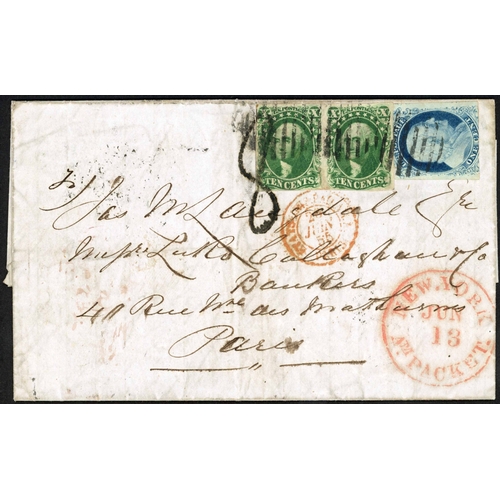 TEN CENTS TEN CENTS
8
Jas M Esqr
Messrs Luke Callaghan & Co
Bankers
41 Rue Nve des Mathurins
Paris
NEW YORK
JUN
13
AM. PACKET